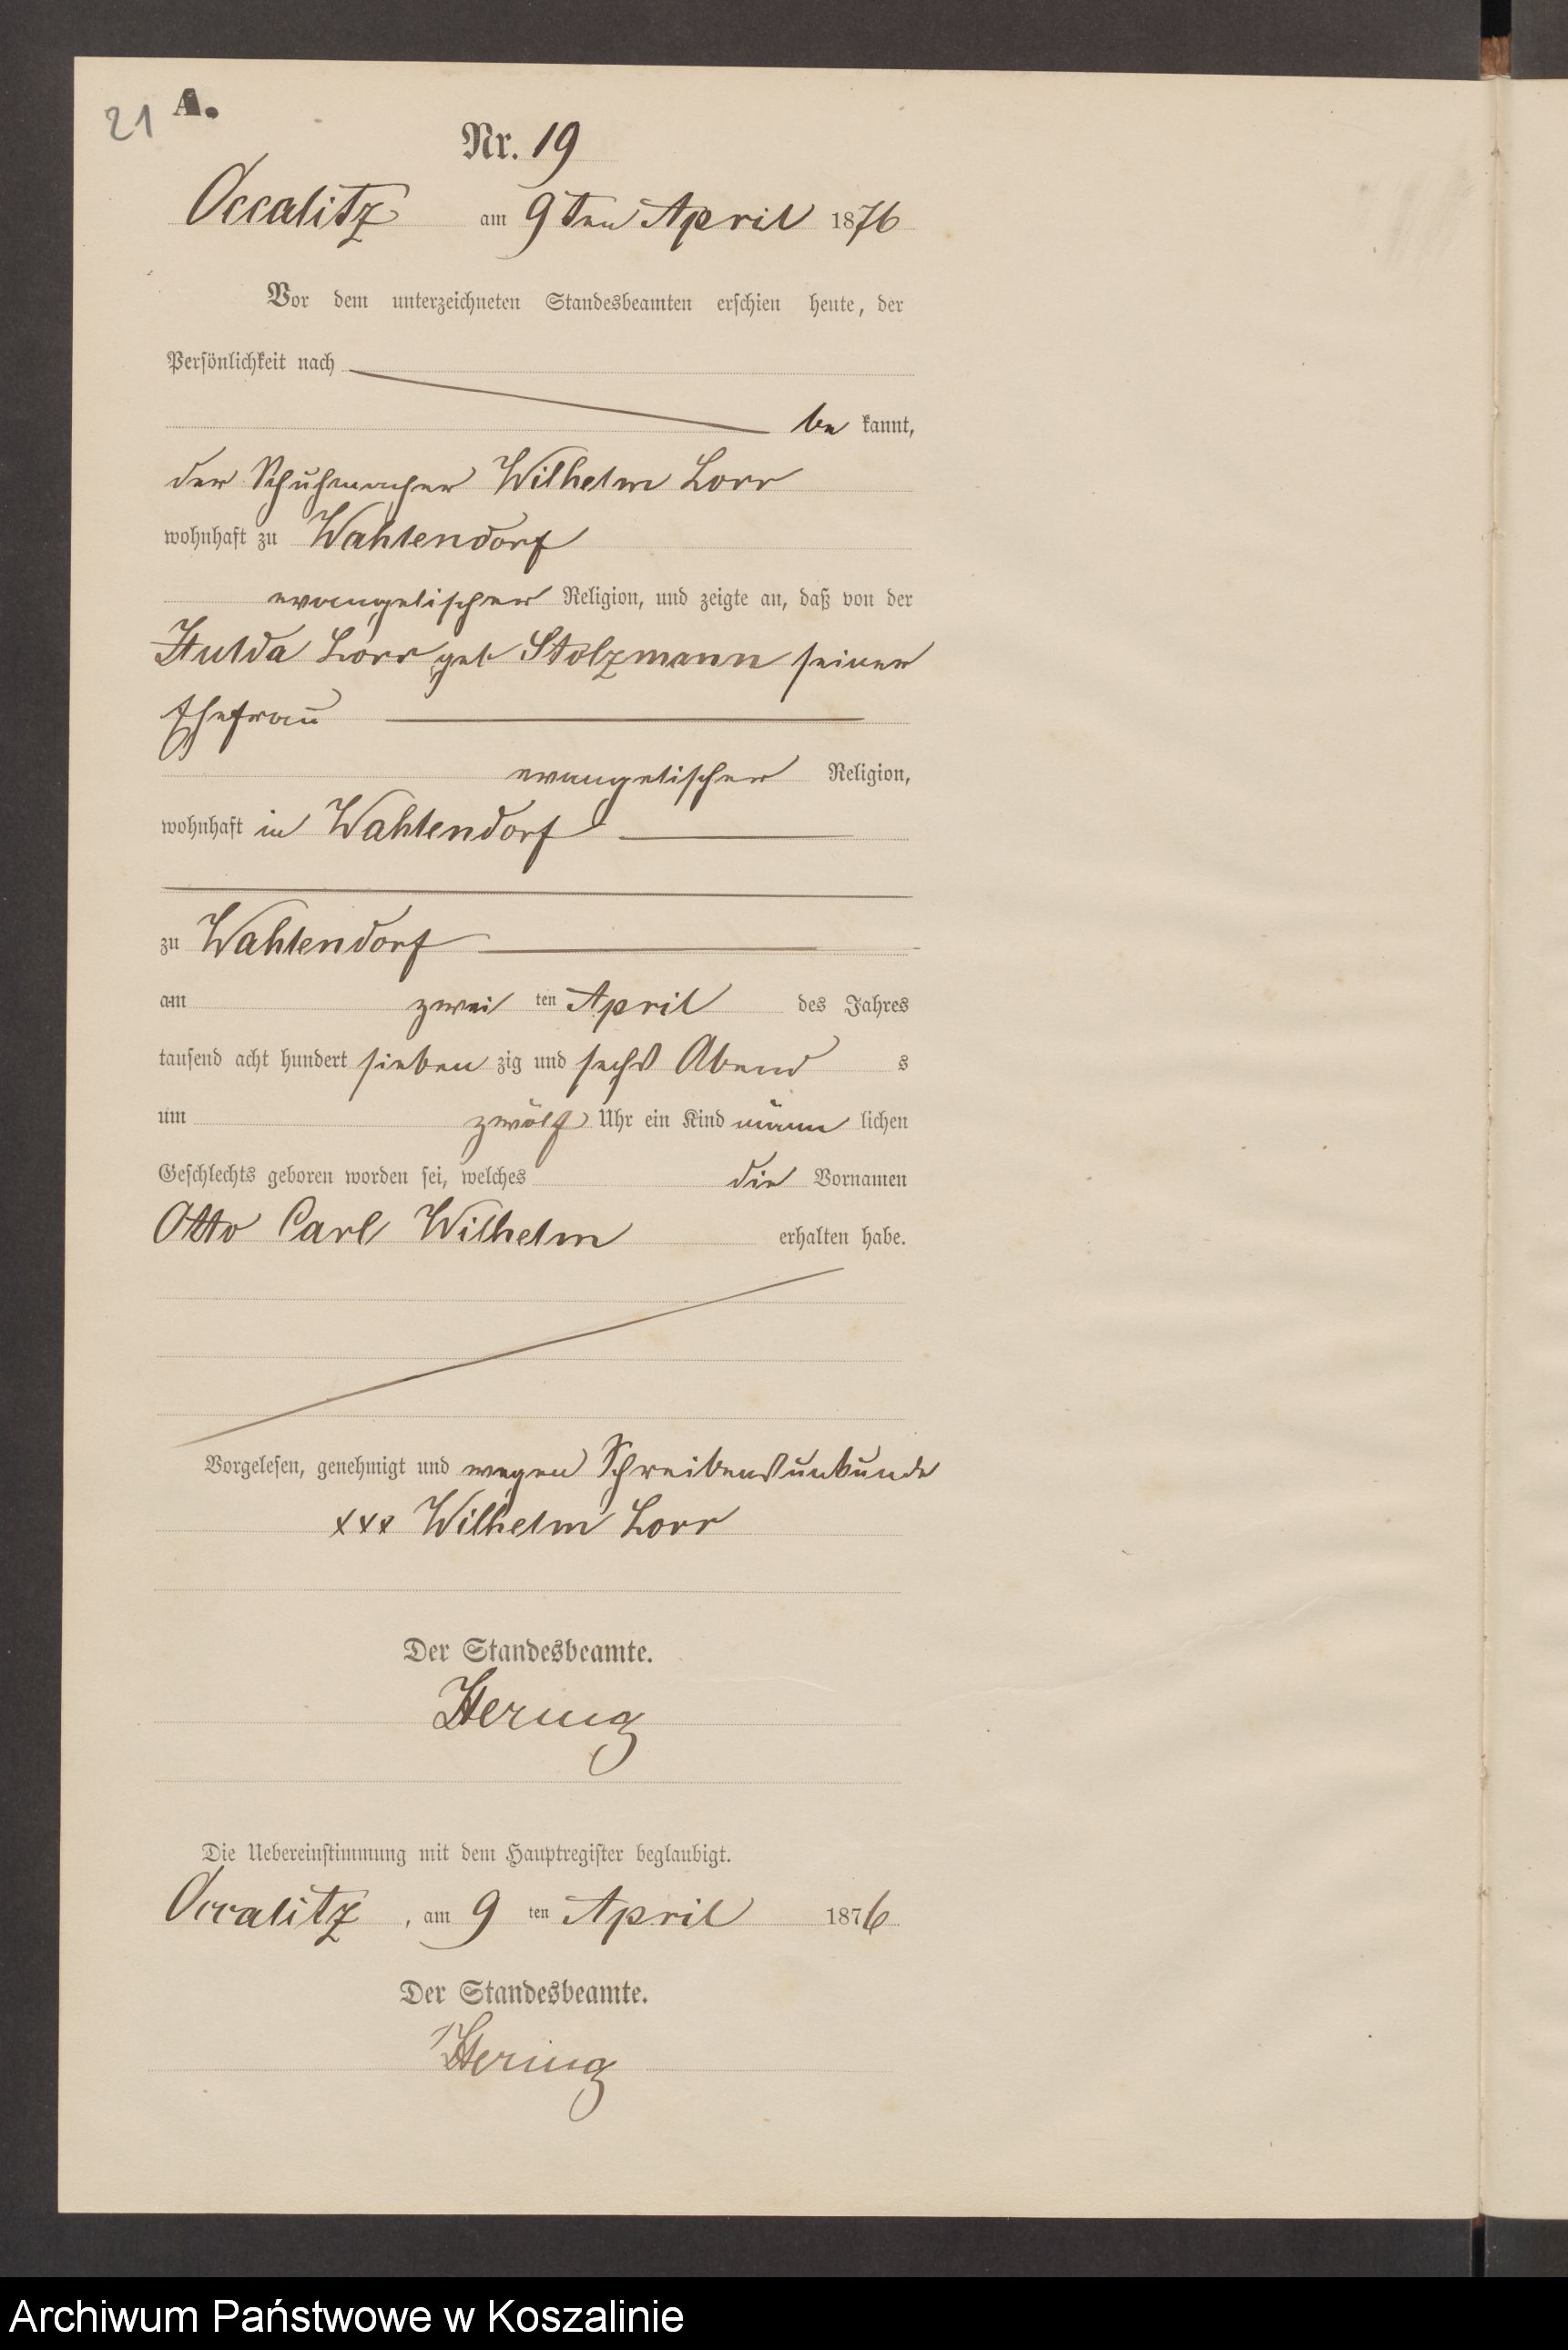 21 A.
Nr. 19
Occalitz am 9ten April 1876
Vor dem unterzeichneten Standesbeamten erschien heute, der
Persönlichkeit nach
be kannt,
der Schuhmacher Wilhelm Lorr
wohnhaft zu Wahlendorf
evangelischer Religion, und zeigte an, daß von der
Hulda Lorr geb Stolzmann seiner
Ehefrau
evangelischer Religion,
wohnhaft in Wahlendorf
zu Wahlendorf
am zwei ten April des Jahres
tausend acht hundert sieben zig und sechs Abend s
um zwölf Uhr ein Kind männ lichen
Geschlechts geboren worden sei, welches die Vornamen
Otto Carl Wilhelm erhalten habe.
Vorgelesen, genehmigt und wegen Schreibensunkunde
xxx Wilhelm Lorr
Der Standesbeamte.
Hering
Die Uebereinstimmung mit dem Hauptregister beglaubigt.
Occalitz, am 9 ten April 1876
Der Standesbeamte.
Hering
Archiwum Państwowe w Koszalinie